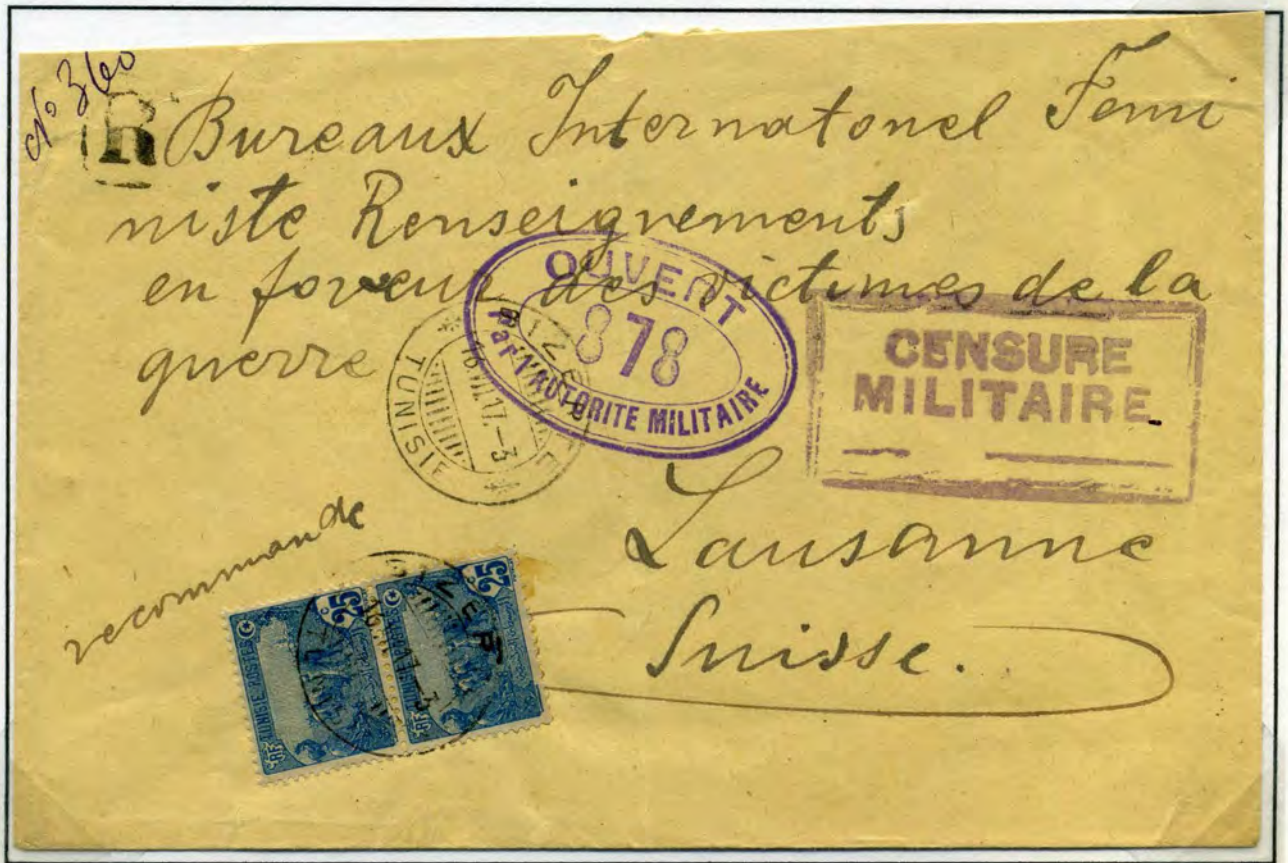 No 360
R
Bureaux Internatonel Femi
niste Renseignements
en faveur des victimes de la
guerre
OUVERT
878
Par l'AUTORITE MILITAIRE
CENSURE
MILITAIRE
BIZERTE
TUNISIE
Lausanne
Suisse.
recommande
25
TUNISIE POSTES
RF
25
TUNISIE POSTES
RF